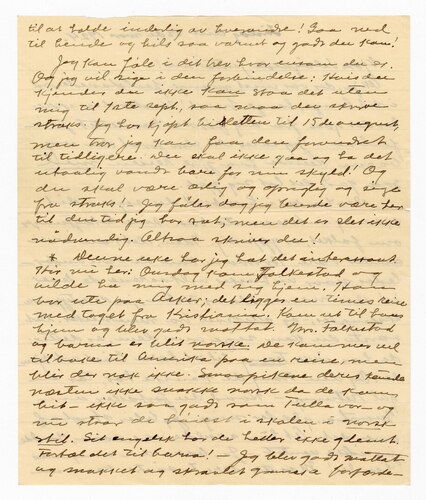 til at holde inderlig av hverandre! Gaa ned
til hende og hils saa varmt og godt du kan!
Jeg kan föle i dit brev hvor ensom du er.
Og jeg vil sige i den forbindelse: Hvis du
kjender du ikke kan staa det uten
mig til 1ste sept, saa maa du skrive
straks. Jeg har kjöpt billetten til 15de august,
men tror jeg kan faa den forandret
til tidligere. Du skal ikke gaa og ha det
utaalig vondt bare for min skyld! Og
du skal være ærlig og oprigtig og sige
fra straks! Jeg föler dog jeg burde være her
til den tid jeg har sat; men det er slet ikke
nödvendig. Altsaa skriver du!
* Denne uke har jeg hat det interessant.
Hör nu her: Onsdag kom Falkestad og
vilde ha mig med sig hjem. Ham
bor ute paa Asker; det ligger en times reise
med toget fra Kristiania. Kom ut til hans
hjem og blev godt mottat. Mrs. Falkestad
og barna er blit norske. De kommer vel
tilbake til Amerika paa en reise, men
blir der nok ikke. Smaapikene deres kunde
næsten ikke snakke norsk da de kom
hit – ikke saa godt som Tulla vor – og
nu staar de höiest i skolen i norsk
stil. Sit engelsk har de heller ikke glemt.
Fortæl det til barna! – Jeg blev godt mottat
og snakket og skrattet ganske forfærde-